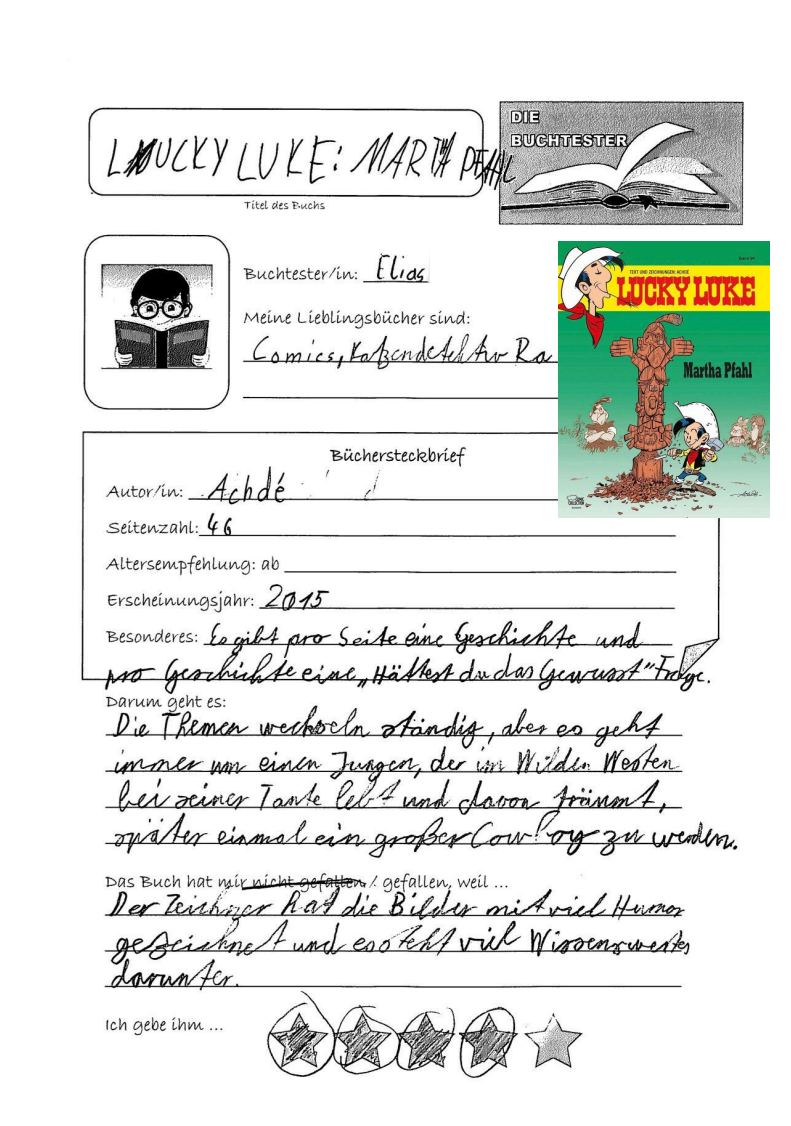 DIE
BUCHTESTER
LUCKY LUKE: MARTHA PFAHL
Titel des Buchs
Buchtester/in: Elias
Meine Lieblingsbücher sind:
Comics, Katzendetektiv Ra
TEXT UND ZEICHNUNGEN: ACHDÉ
LUCKY LUKE
Martha Pfahl
Büchersteckbrief
Autor/in: Achdé
Seitenzahl: 46
Altersempfehlung: ab
Erscheinungsjahr: 2015
Besonderes: Es gibt pro Seite eine Geschichte und
pro Geschichte eine „Hättest du das Gewusst" Frage.
Darum geht es:
Die Themen wechseln ständig, aber es geht
immer um einen Jungen, der im Wilden Westen
bei seiner Tante lebt und davon träumt,
später einmal ein großer Cowboy zu werden.
Das Buch hat mir nicht gefallen / gefallen, weil ...
Der Zeichner hat die Bilder mit viel Humor
gezeichnet und es steht viel Wissenswertes
darunter.
Ich gebe ihm ...